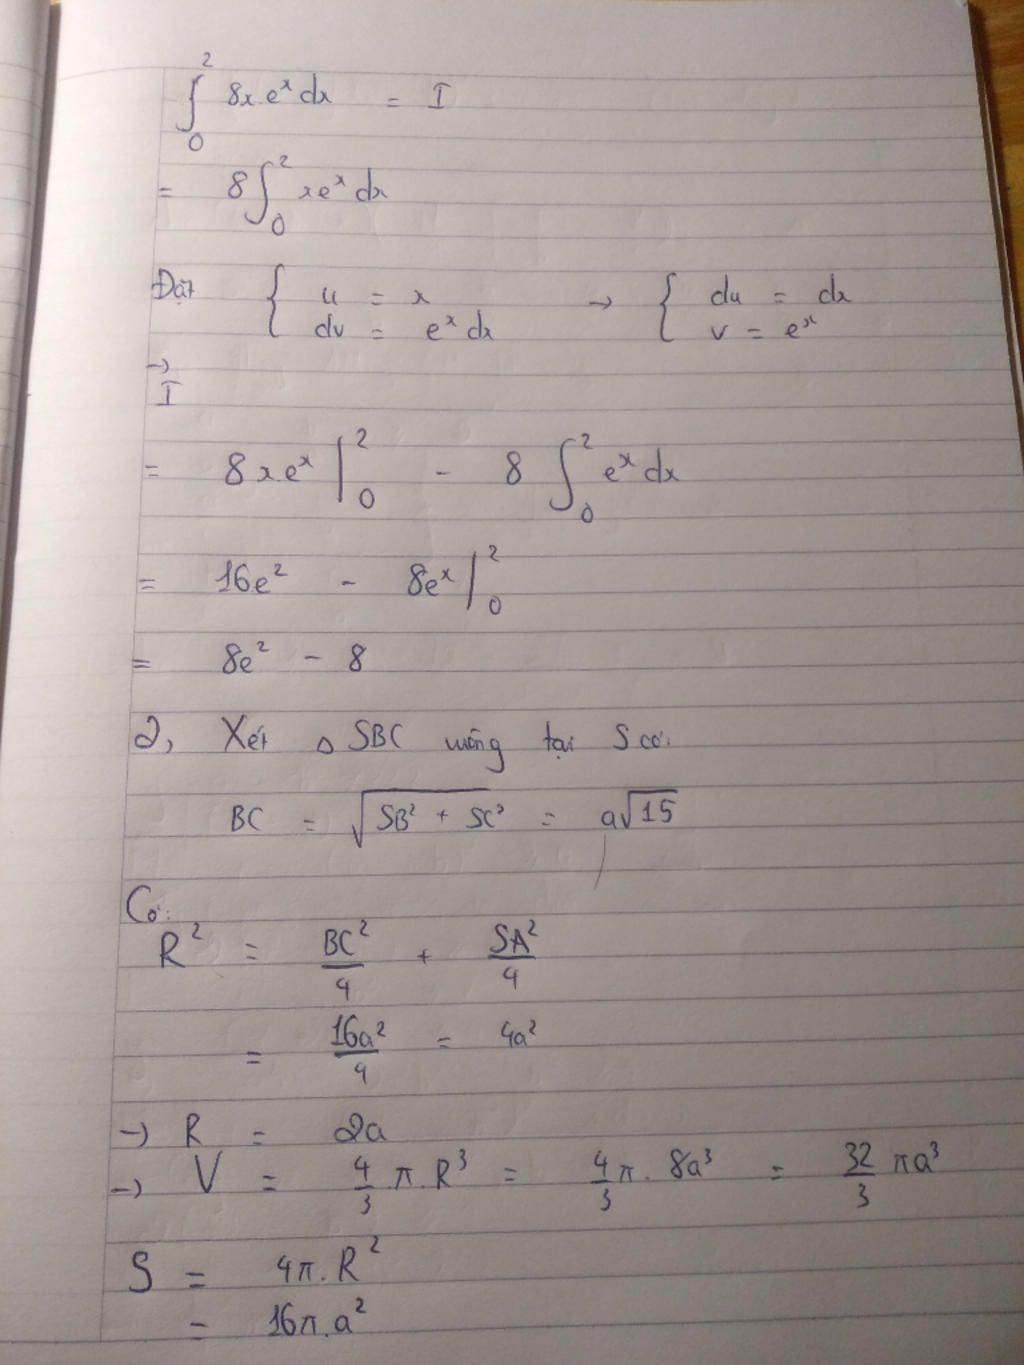 ∫₀² 8x.eˣ dx = I
= 8∫₀² xeˣ dx
Đặt { u = x → { du = dx
dv = eˣ dx v = eˣ
→
I
= 8xeˣ |₀² - 8 ∫₀² eˣ dx
= 16e² - 8eˣ |₀²
= 8e² - 8
2, Xét △ SBC vuông tại S có:
BC = √(SB² + SC²) = a√15
Có:
R² = BC²/4 + SA²/4
= 16a²/4 = 4a²
→ R = 2a
→ V = 4/3 .π.R³ = 4/3 π. 8a³ = 32/3 πa³
S = 4π.R²
= 16π.a²